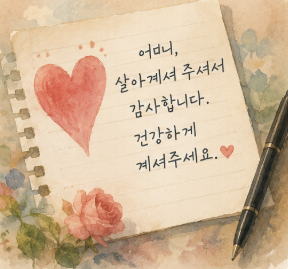 어머니,
살아계셔 주셔서
감사합니다.
건강하게
계셔주세요.